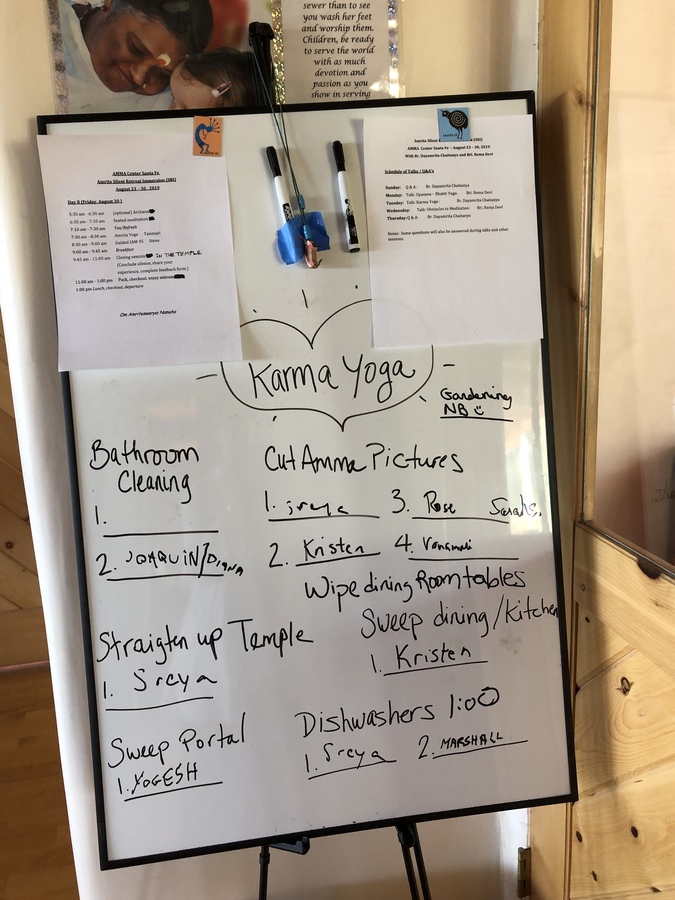 sewer than to see
you wash her feet
and worship them.
Children, be ready
to serve the world
with as much
devotion and
passion as you
show in serving
AMMA Center Santa Fe
Amrita Silent Retreat Immersion (SRI)
August 23 - 30, 2019
Day 8 (Friday, August 30 )
5:30 am - 6:30 am (optional) Archana
6:30 am - 7:10 am Seated meditation
7:10 am - 7:30 am Tea/Refresh
7:30 am - 8:30 am Amrita Yoga
8:30 am - 9:00 am Guided IAM 35
9:00 am - 9:45 am Breakfast
9:45 am - 11:00 am Closing session IN THE TEMPLE
(Conclude silence, share your
experience, complete feedback form.)
11:00 am - 1:00 pm Pack, checkout, enjoy
1:00 pm Lunch, checkout, departure
Om Amriteswaryai Namaha
AMMA Center Santa Fe - August 23 - 30, 2019
With Br. Dayamrita Chaitanya and Bri. Rema Devi
Schedule of Talks / Q&A's
Sunday: Q & A : Br. Dayamrita Chaitanya
Monday: Talk: Upasana - Bhakti Yoga: Bri. Rema Devi
Tuesday: Talk: Karma Yoga : Br. Dayamrita Chaitanya
Wednesday: Talk: Obstacles to Meditation: Bri. Rema Devi
Thursday: Q & A: Br. Dayamrita Chaitanya
Notes: Some questions will also be answered during talks and other
sessions
Karma Yoga
Gardening
NB
Bathroom
Cleaning
1.
2. JOAQUIN/Diana
Cut Amma Pictures
1. sreya 3. Rose Sarah
2. Kristen 4. Vanamali
Wipe dining Room tables
Sweep dining/Kitchen
1. Kristen
Straigten up Temple
1. Sreya
Sweep Portal
1. YOGESH
Dishwashers 1:00
1. Sreya 2. MARSHALL